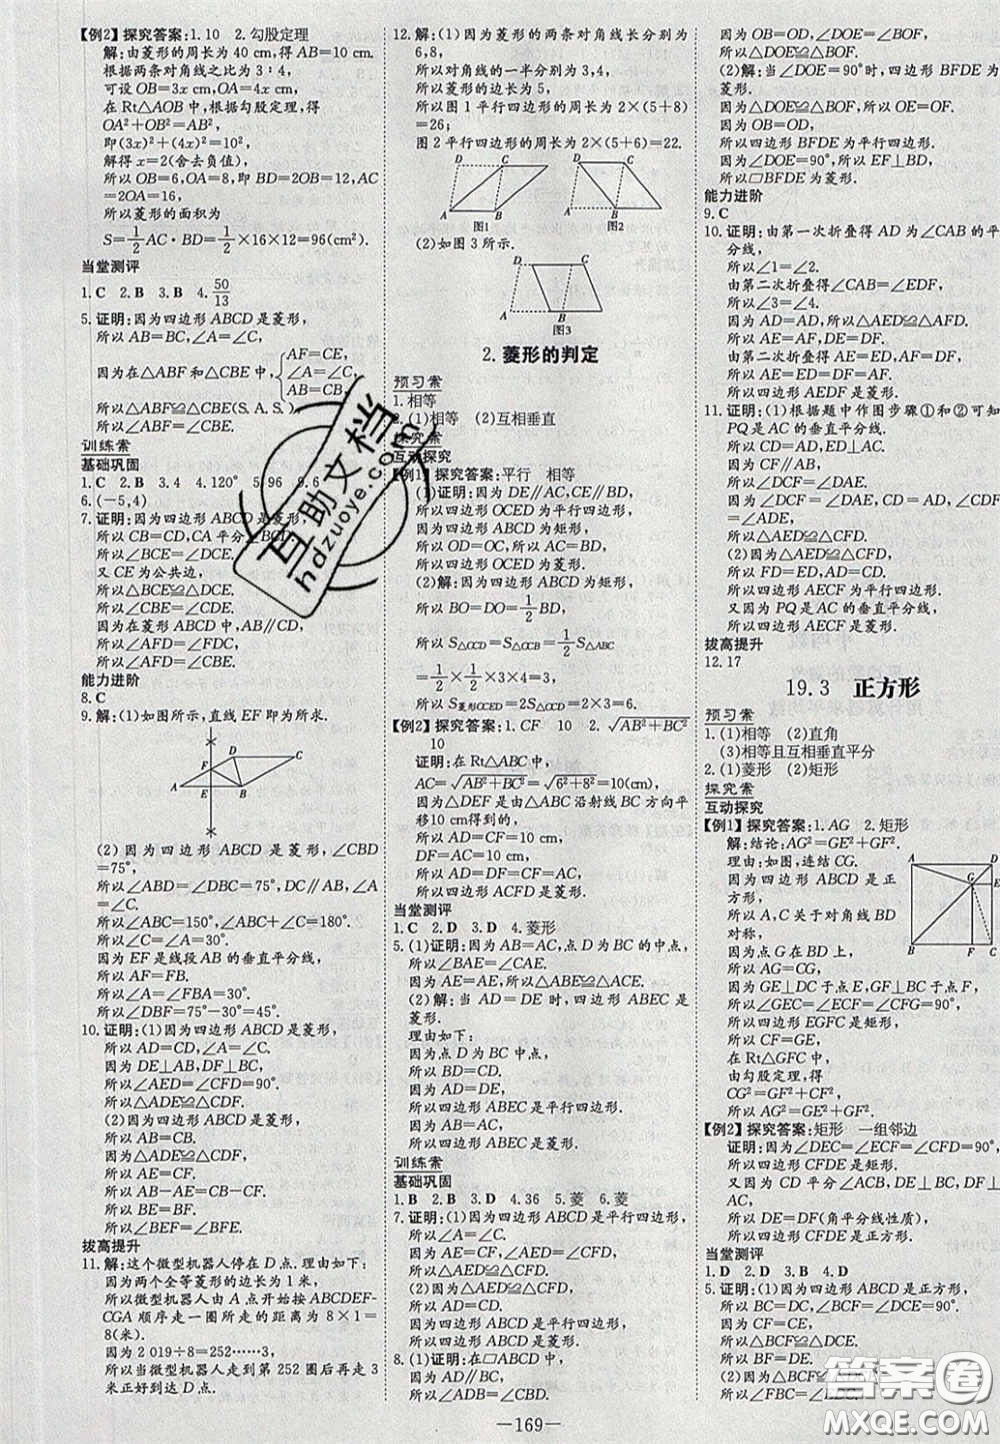 【例2】探究答案:1.10 2.勾股定理
解:由菱形的周长为 40 cm,得 AB=10 cm.
根据两条对角线之比为 3∶4,
可设 OB=3x cm,OA=4x cm,
在 Rt△AOB 中,根据勾股定理,得
OA²+OB²=AB²,
即(3x)²+(4x)²=10²,
解得 x=2(舍去负值),
所以 OB=6,OA=8,即 BD=2OB=12,AC
=2OA=16,
所以菱形的面积为
S=1/2AC·BD=1/2×16×12=96(cm²).
当堂测评
1.C 2.B 3.B 4.50/13
5.证明:因为四边形 ABCD 是菱形,
所以 AB=BC,∠A=∠C,
因为在△ABF 和△CBE 中,{AF=CE,
∠A=∠C,
AB=CB,
所以△ABF≌△CBE(S.A.S.)
训练案
基础巩固
1.C 2.B 3.B 4.120° 5.96 6.
6.(-5,4)
7.证明:因为四边形 ABCD 是菱形,
所以 CB=CD,CA 平分∠BCD.
所以∠BCE=∠DCE.
又 CE 为公共边,
所以△BCE≌△DCE.
所以∠CBE=∠CDE.
因为在菱形 ABCD 中,AB∥CD,
所以∠AFD=∠FDC,
所以∠AFD=∠CBE.
能力进阶
8.C
9.解:(1)如图所示,直线 EF 即为所求.
D C
F
A E B
(2)因为四边形 ABCD 是菱形,∠CBD
=75°,
所以∠ABD=∠DBC=75°,DC∥AB,∠A
=∠C.
所以∠ABC=150°,∠ABC+∠C=180°.
所以∠C=∠A=30°.
因为 EF 是线段 AB 的垂直平分线,
所以 AF=FB.
所以∠A=∠FBA=30°.
所以∠DBF=75°-30°=45°.
10.证明:(1)因为四边形 ABCD 是菱形,
所以 AD=CD,∠A=∠C.
因为 DE⊥BA,DF⊥CB,
所以∠AED=∠CFD=90°.
所以△ADE≌△CDF.
(2)因为四边形 ABCD 是菱形,
所以 AB=CB.
因为△ADE≌△CDF,
所以 AE=CF.
所以 BE=BF.
所以∠BEF=∠BFE.
拔高提升
11.解:这个微型机器人停在 D 点.理由如下:
因为两个全等菱形的边长为 1 米,
所以微型机器人由 A 点开始按 ABCDEF-
CGA 顺序走一圈所走的路程为 8×1=
8(米).
因为 2 019÷8=252……3,
所以当微型机器人走到第 252 圈后再走 3
米正好到达 D 点.
12.解:(1)因为菱形的两条对角线长分别为
6,8,
所以对角线的一半分别为 3,4,
所以菱形的边长为 5,
所以图 1 平行四边形的周长为 2×(5+8)
=26;
图 2 平行四边形的周长为 2×(5+6)=22.
D C D C
A B A B
图1 图2
(2)如图 3 所示.
D C
A B
图3
2.菱形的判定
预习案
1.相等
2.(1)相等 (2)互相垂直
探究案
互动探究
【例1】探究答案:平行 相等
(1)证明:因为 DE∥AC,CE∥BD,
所以四边形 OCED 为平行四边形.
因为四边形 ABCD 为矩形,
所以 OD=OC,所以四边形 OCED 为菱形.
(2)解:因为四边形 ABCD 为矩形,
所以 BO=DO=1/2BD,
所以 S△OCD=S△OCB=1/2S△BCD
=1/2×1/2×3×4=3,
所以 S菱形OCED=2S△OCD=2×3=6.
【例2】探究答案:1.CF 10 2.√AB²+BC²
10
证明:在 Rt△ABC 中,
AC=√AB²+BC²=√6²+8²=10(cm).
因为△DEF 是由△ABC 沿射线 BC 方向平
移10 cm得到的,
所以 DF=AC,AD=CF=10 cm,
所以 AD=CF=AC=DF,
所以四边形 ACFD 是菱形.
当堂测评
1.C 2.D 3.D 4.菱形
5.(1)证明:因为 AB=AC,点 D 为 BC 的中点,
所以∠BAE=∠CAE.
因为 AE=AE,所以△ABE≌△ACE.
(2)解:当 AD=DE 时,四边形 ABEC 是
菱形.
理由如下:
因为点 D 为 BC 中点,
所以 BD=CD.
因为 AD=DE,
所以四边形 ABEC 是平行四边形.
因为 AB=AC,
所以四边形 ABEC 是菱形.
训练案
基础巩固
1.B 2.B 3.D 4.36 5.菱 6.菱
7.证明:(1)因为四边形 ABCD 是平行四边形,
所以∠A=∠C.
因为 AE=CF,∠AED=∠CFD,
所以△AED≌△CFD.
(2)因为△AED≌△CFD,
所以 AD=CD.
因为四边形 ABCD 是平行四边形,
所以四边形 ABCD 是菱形.
8.(1)证明:在▱ABCD 中,O 为对角线 BD 的中点,
所以 BO=DO,∠EDB=∠FBO.
因为 OB=OD,∠DOE=∠BOF,
所以△DOE≌△BOF.
(2)解:当∠DOE=90°时,四边形 BFDE 为
菱形.
因为△DOE≌△BOF,所以 OE=OF.
因为 OB=OD,
所以四边形 BFDE 为平行四边形.
因为∠DOE=90°,所以 EF⊥BD,
所以▱BFDE 为菱形.
能力进阶
9.C
10.证明:由第一次折叠得 AD 为∠CAB 的平
分线,
所以∠1=∠2.
由第二次折叠得∠CAB=∠EDF,
所以∠3=∠4.
因为 AD=AD,所以△AED≌△AFD.
由第二次折叠得 AE=ED,AF=DF,
所以 AE=ED=AF=DF,
所以四边形 AEDF 是菱形.
11.证明:(1)根据题中作图步骤①和②可知
PQ 是 AC 的垂直平分线.
所以 AD=CD,ED⊥AC.
因为 CF∥AB,
所以∠DCF=∠DAE.
因为∠DCF=∠DAE,CD=AD,∠CDF
=∠ADE,
所以△AED≌△CFD.
(2)因为△AED≌△CFD,
所以 FD=ED,AD=CD,
所以四边形 AECF 为平行四边形.
又因为 PQ 是 AC 的垂直平分线,
所以四边形 AECF 是菱形.
拔高提升
12.17
19.3 正方形
预习案
1.(1)相等 (2)直角
(3)相等且互相垂直平分
2.(1)菱形 (2)矩形
探究案
互动探究
【例1】探究答案:1.AG 2.矩形
解:结论:AG²=GE²+GF².
理由:如图,连结 CG.
因为四边形 ABCD 是正
方形,
所以 A,C 关于对角线 BD
对称,
因为点 G 在 BD 上,
所以 AG=CG,
A D
G E
B F C
因为 GE⊥DC 于点 E,GF⊥BC 于点 F,
所以∠GEC=∠ECF=∠CFG=90°,
所以四边形 EGFC 是矩形,
所以 CF=GE,
在 Rt△GFC 中,
由勾股定理,得
CG²=GF²+CF²,
所以 AG²=GE²+GF².
【例2】探究答案:矩形 一组邻边
证明:因为∠DEC=∠ECF=∠CFD=90°,
所以四边形 CFDE 是矩形.
又因为 CD 平分∠ACB,DE⊥BC,DF⊥
AC,
所以 DE=DF(角平分线性质),
所以四边形 CFDE 是正方形.
当堂测评
1.D 2.D 3.B 4.D
5.证明:(1)因为四边形 ABCD 是正方形,
所以 BC=DC,∠BCF=∠DCE=90°,
因为 CF=CE,
所以△BCF≌△DCE.
所以 BF=DE.
因为△BCF≌△DCE,
所以∠CBF=∠CDE,
—169—
互助文档
hdzuoye.com
答案圈
MXQE.COM